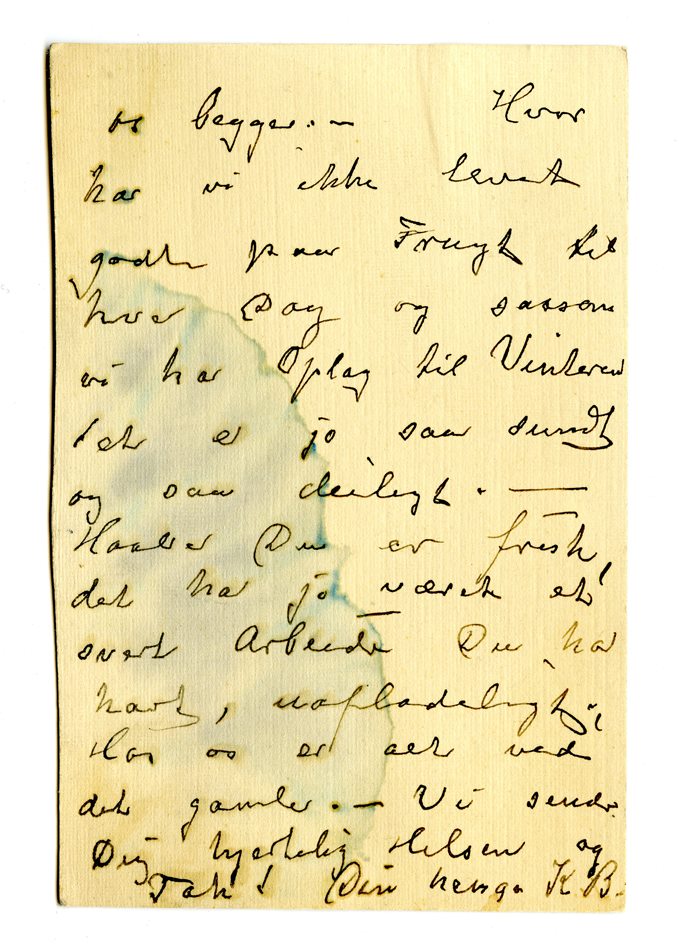 os begge. — Hvor
har vi ikke levet
godt paa Frugt til
hver Dag og sassom
vi har Oplag til Vinteren
det er jo saa sundt
og saa deiligt. —
Haaber Du er frisk,
det har jo været et
svert Arbeide Du har
havt, uafladeligt;
Hos os er alt ved
det gamle. — Vi sender
Dig hjertelig Hilsen og
Tak! Din K B.